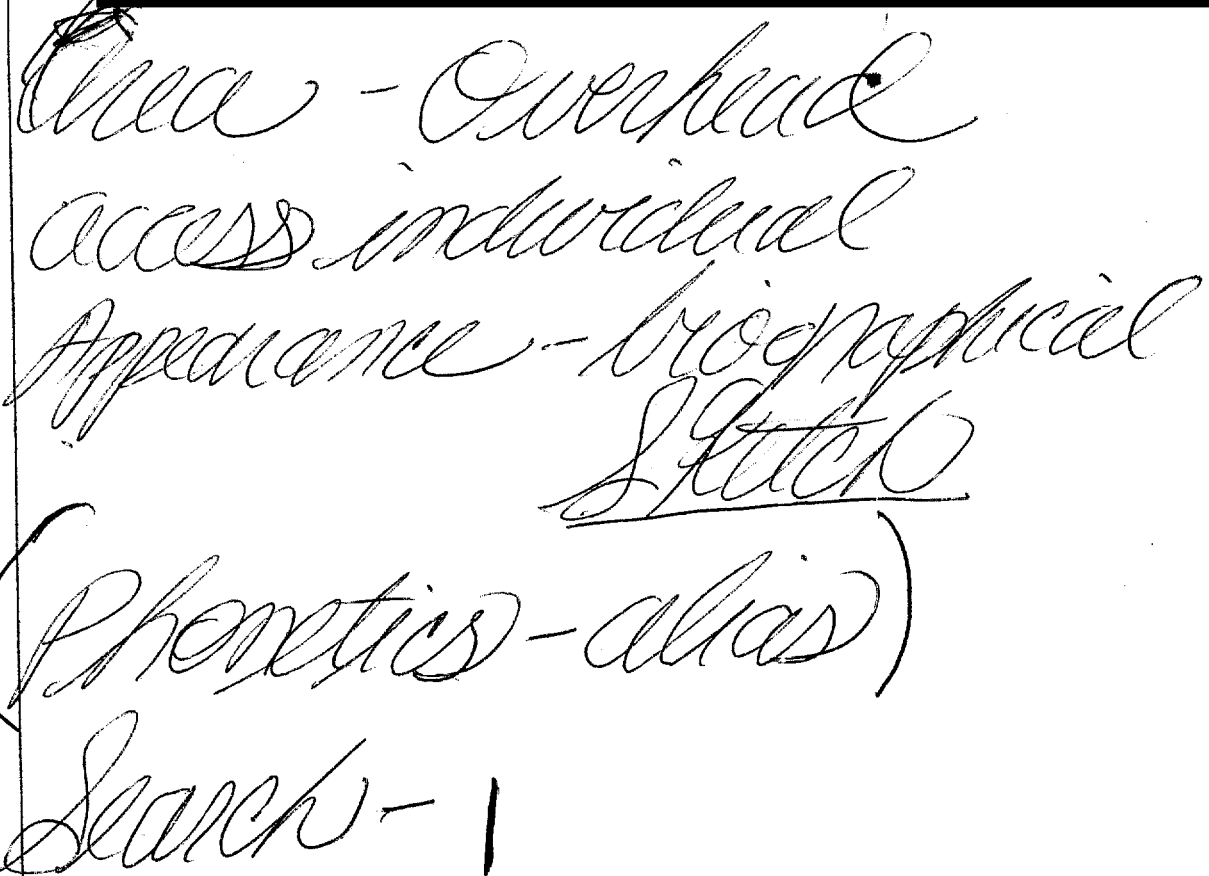 Area - Overhead
access individual
Appearance - biographical
Sketch
(Phonetics - alias)
Search -